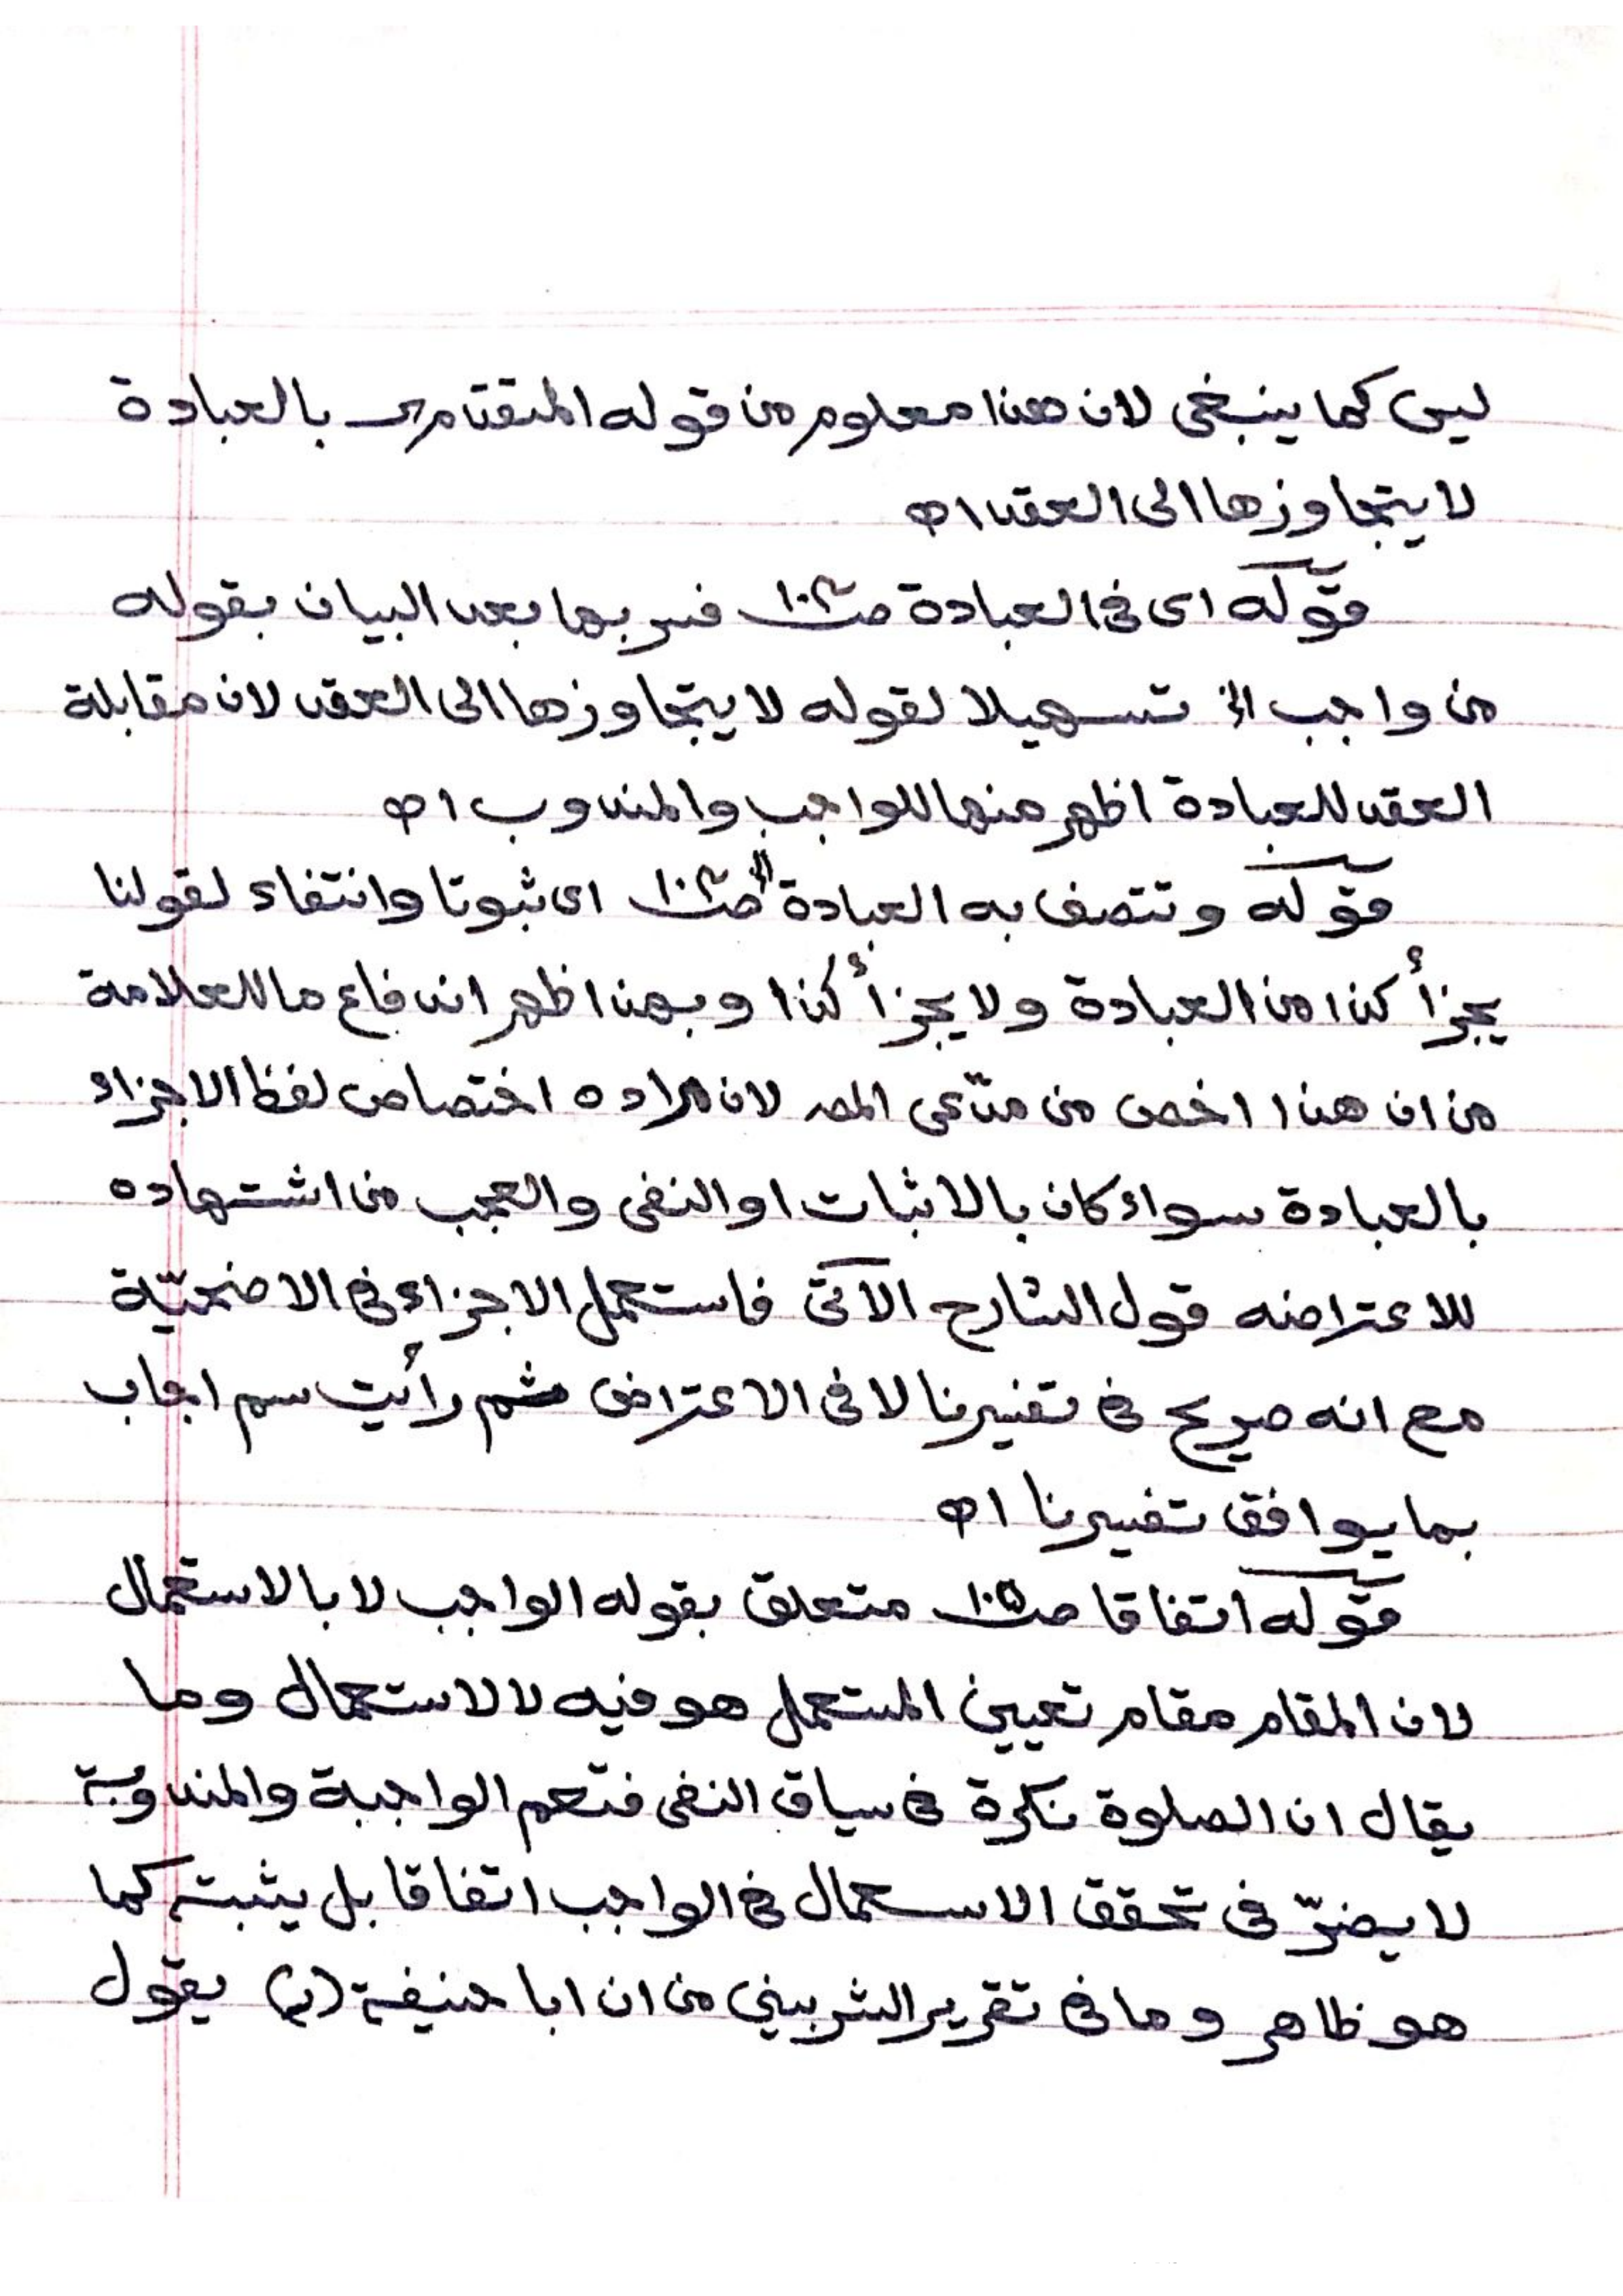 ليس كما ينبغى لان هذا معلوم من قوله المتقدم بالعبادة
لا يتجاوزها الى العقد اه
قوله اى فى العبادة صـ١٠٤ فسر بها بعد البيان بقوله
من واجب الخ تسهيلا لقوله لا يتجاوزها الى العقد لان مقابلة
العقد للعبادة اظهر منها للواجب والمندوب اه
قوله وتتصف به العبادة الخ صـ١٠٤ اى ثبوتا وانتفاء لقولنا
يجزأ كذا من العبادة ولا يجزأ كذا وبهذا ظهر اندفاع ما للعلامة
من ان هذا اخص من مدّعى المصـ لان مراده اختصاص لفظ الاجزاء
بالعبادة سواء كان بالاثبات او النفى والعجب من اشتهاده
للاعتراضه قول الشارح الآتى فاستعمل الاجزاء فى الاضحيّة
مع انه صريح فى تفسيرنا لا فى الاعتراض ثم رأيت سم اجاب
بما يوافق تفسيرنا اه
قوله اتفاقا صـ١٠٥ متعلق بقوله الواجب لا بالاستعمال
لان المقام مقام تعيين المستعمل هو فيه لا لاستعمال وما
يقال ان الصلوة نكرة فى سياق النفى فتعم الواجبة والمندوبة
لا يضرّ فى تحقق الاستعمال فى الواجب اتفاقا بل يثبته كما
هو ظاهر وما فى تقرير الشربيني من ان ابا حنيفة (رح) يقول